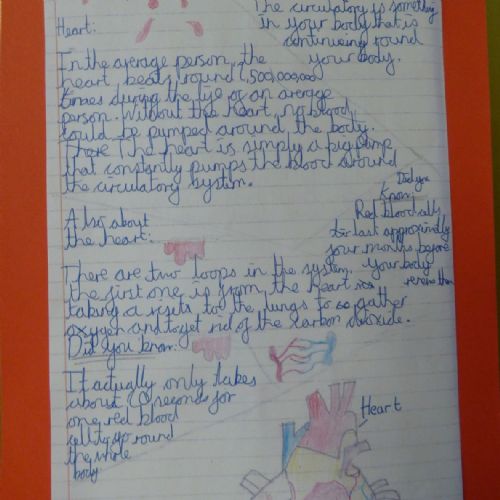 The circulatory is something
in your body that is
continueing round
your body.
Heart:
In the average person, the
heart beats round 1,500,000,000
times during the life of an average
person. Without the heart, no blood
could be pumped around the body.
The heart is simply a big
that constantly pumps the blood around
the circulatory system.
Did you
Know:
Red blood cells
last approximatly
four months before
your body
renews them
Also about
the heart:
There are two loops in the system.
the first one is from the heart
taking a visits to the lungs to gather
oxygen and to get rid of the carbon dioxide.
Did you know:
It actually only takes
about seconds for
one red blood
cell to go round
the whole
body
Heart